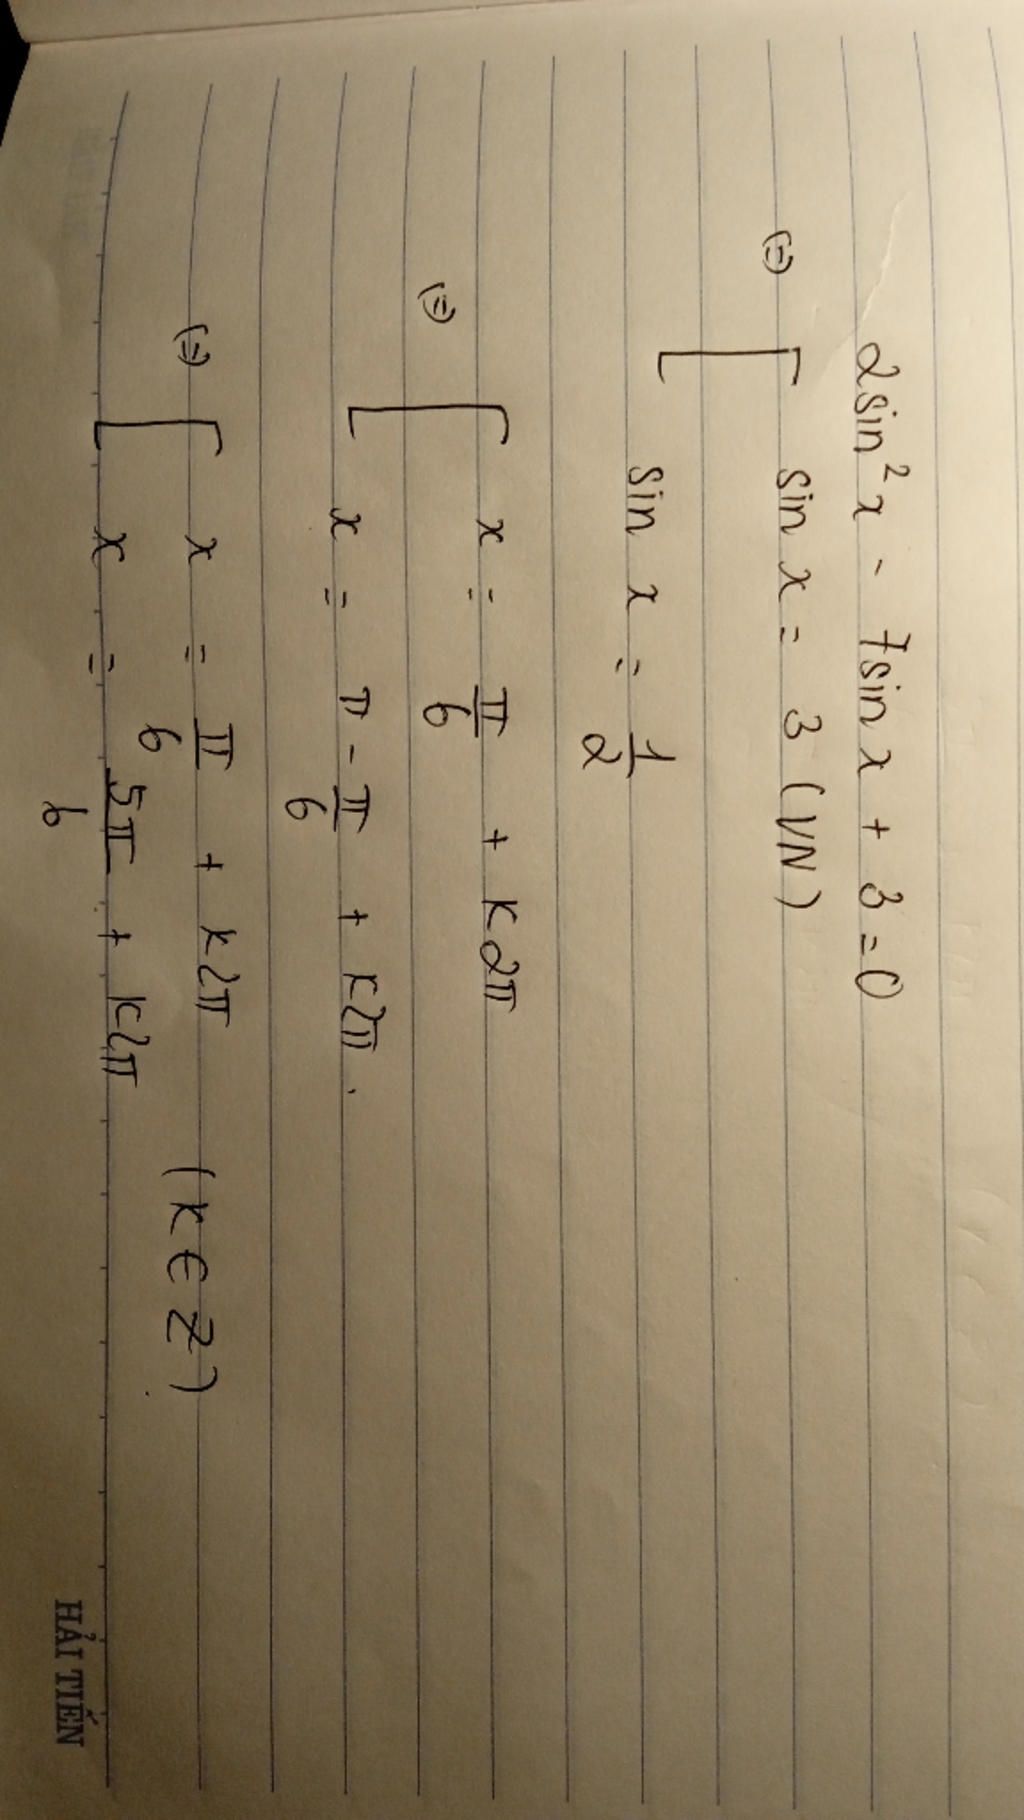 2sin² x - 7sin x + 3 = 0
(=) [ sin x = 3 (VN)
sin x = 1/2
(=) [ x = π/6 + k2π
x = π - π/6 + k2π.
(=) [ x = π/6 + k2π (k ∈ Z)
x = 5π/6 + k2π
HẢI TIẾN